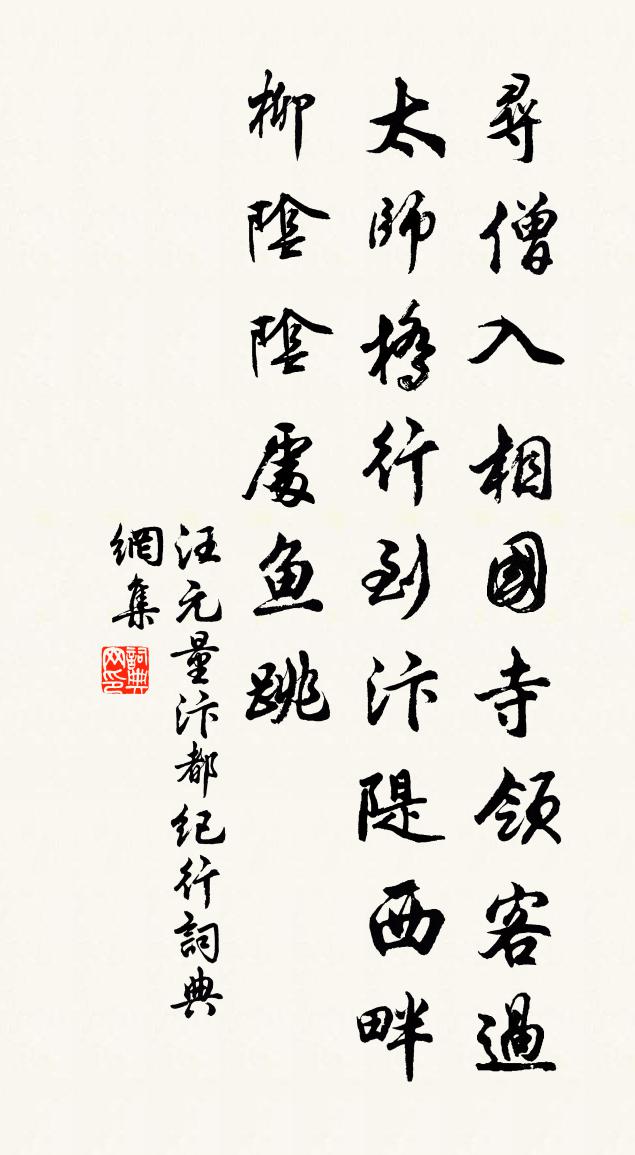 尋僧入相國寺領客過
太師橋行到汴隄西畔
柳陰陰處魚跳
汪元量汴都纪行詞典
網集
詞典
网印